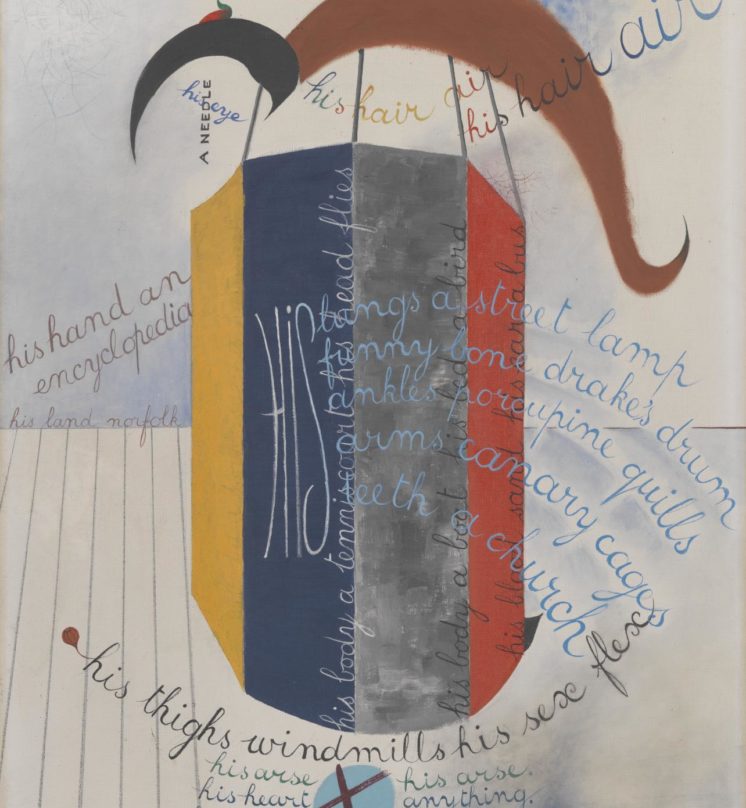 his hair air
his hair air
his eye
A NEEDLE
his hand an
encyclopedia
his land norfolk
HIS
lungs a street lamp
funny bone drake's drum
ankles porcupine quills
arms canary cages
teeth a church
his body a tennis court his head flies
his body a boot his bed a bird
his blood sand his scar a bus
his thighs windmills his sex flex.
his arse his arse.
his heart anything.